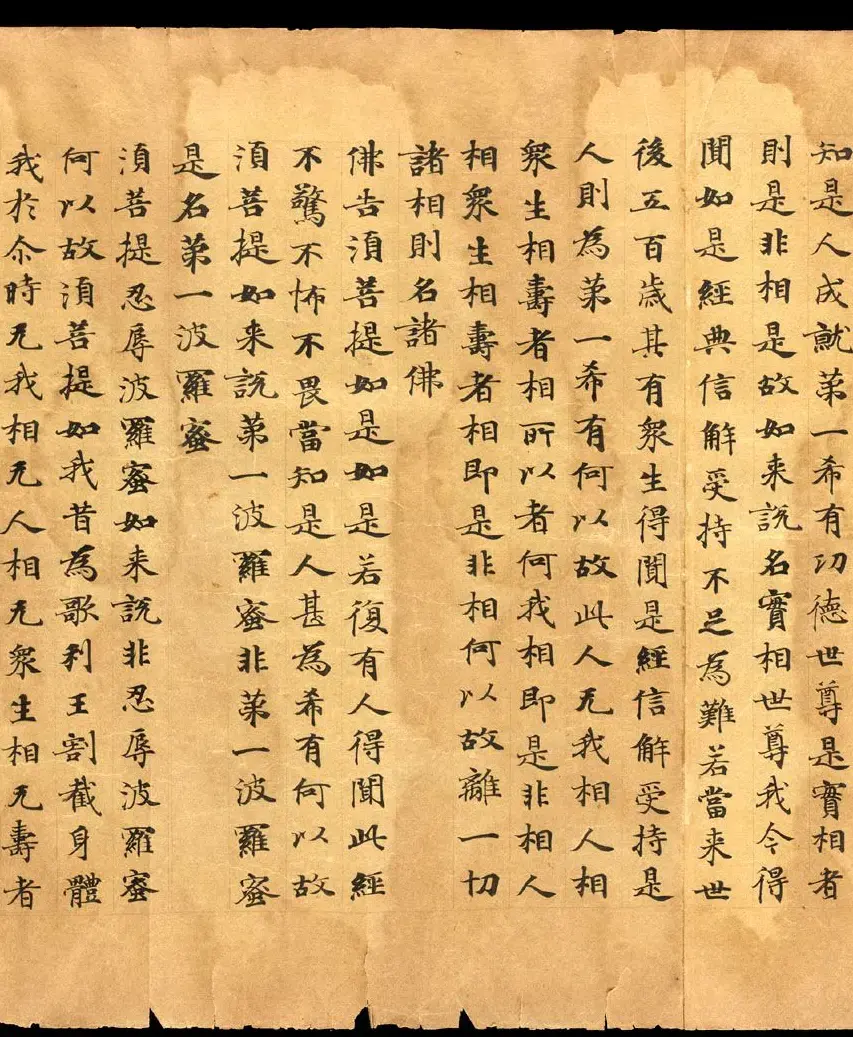 知是人成就苐一希有功德世尊是實相者
則是非相是故如来說名實相世尊我今得
聞如是經典信解受持不足為難若當来世
後五百歲其有衆生得聞是經信解受持是
人則為苐一希有何以故此人无我相人相
衆生相壽者相所以者何我相即是非相人
相衆生相壽者相即是非相何以故離一切
諸相則名諸佛
佛告湏菩提如是如是若復有人得聞此經
不驚不怖不畏當知是人甚為希有何以故
湏菩提如来說苐一波羅蜜非苐一波羅蜜
是名苐一波羅蜜
湏菩提忍辱波羅蜜如来說非忍辱波羅蜜
何以故湏菩提如我昔為歌利王割截身體
我於尒時无我相无人相无衆生相无壽者